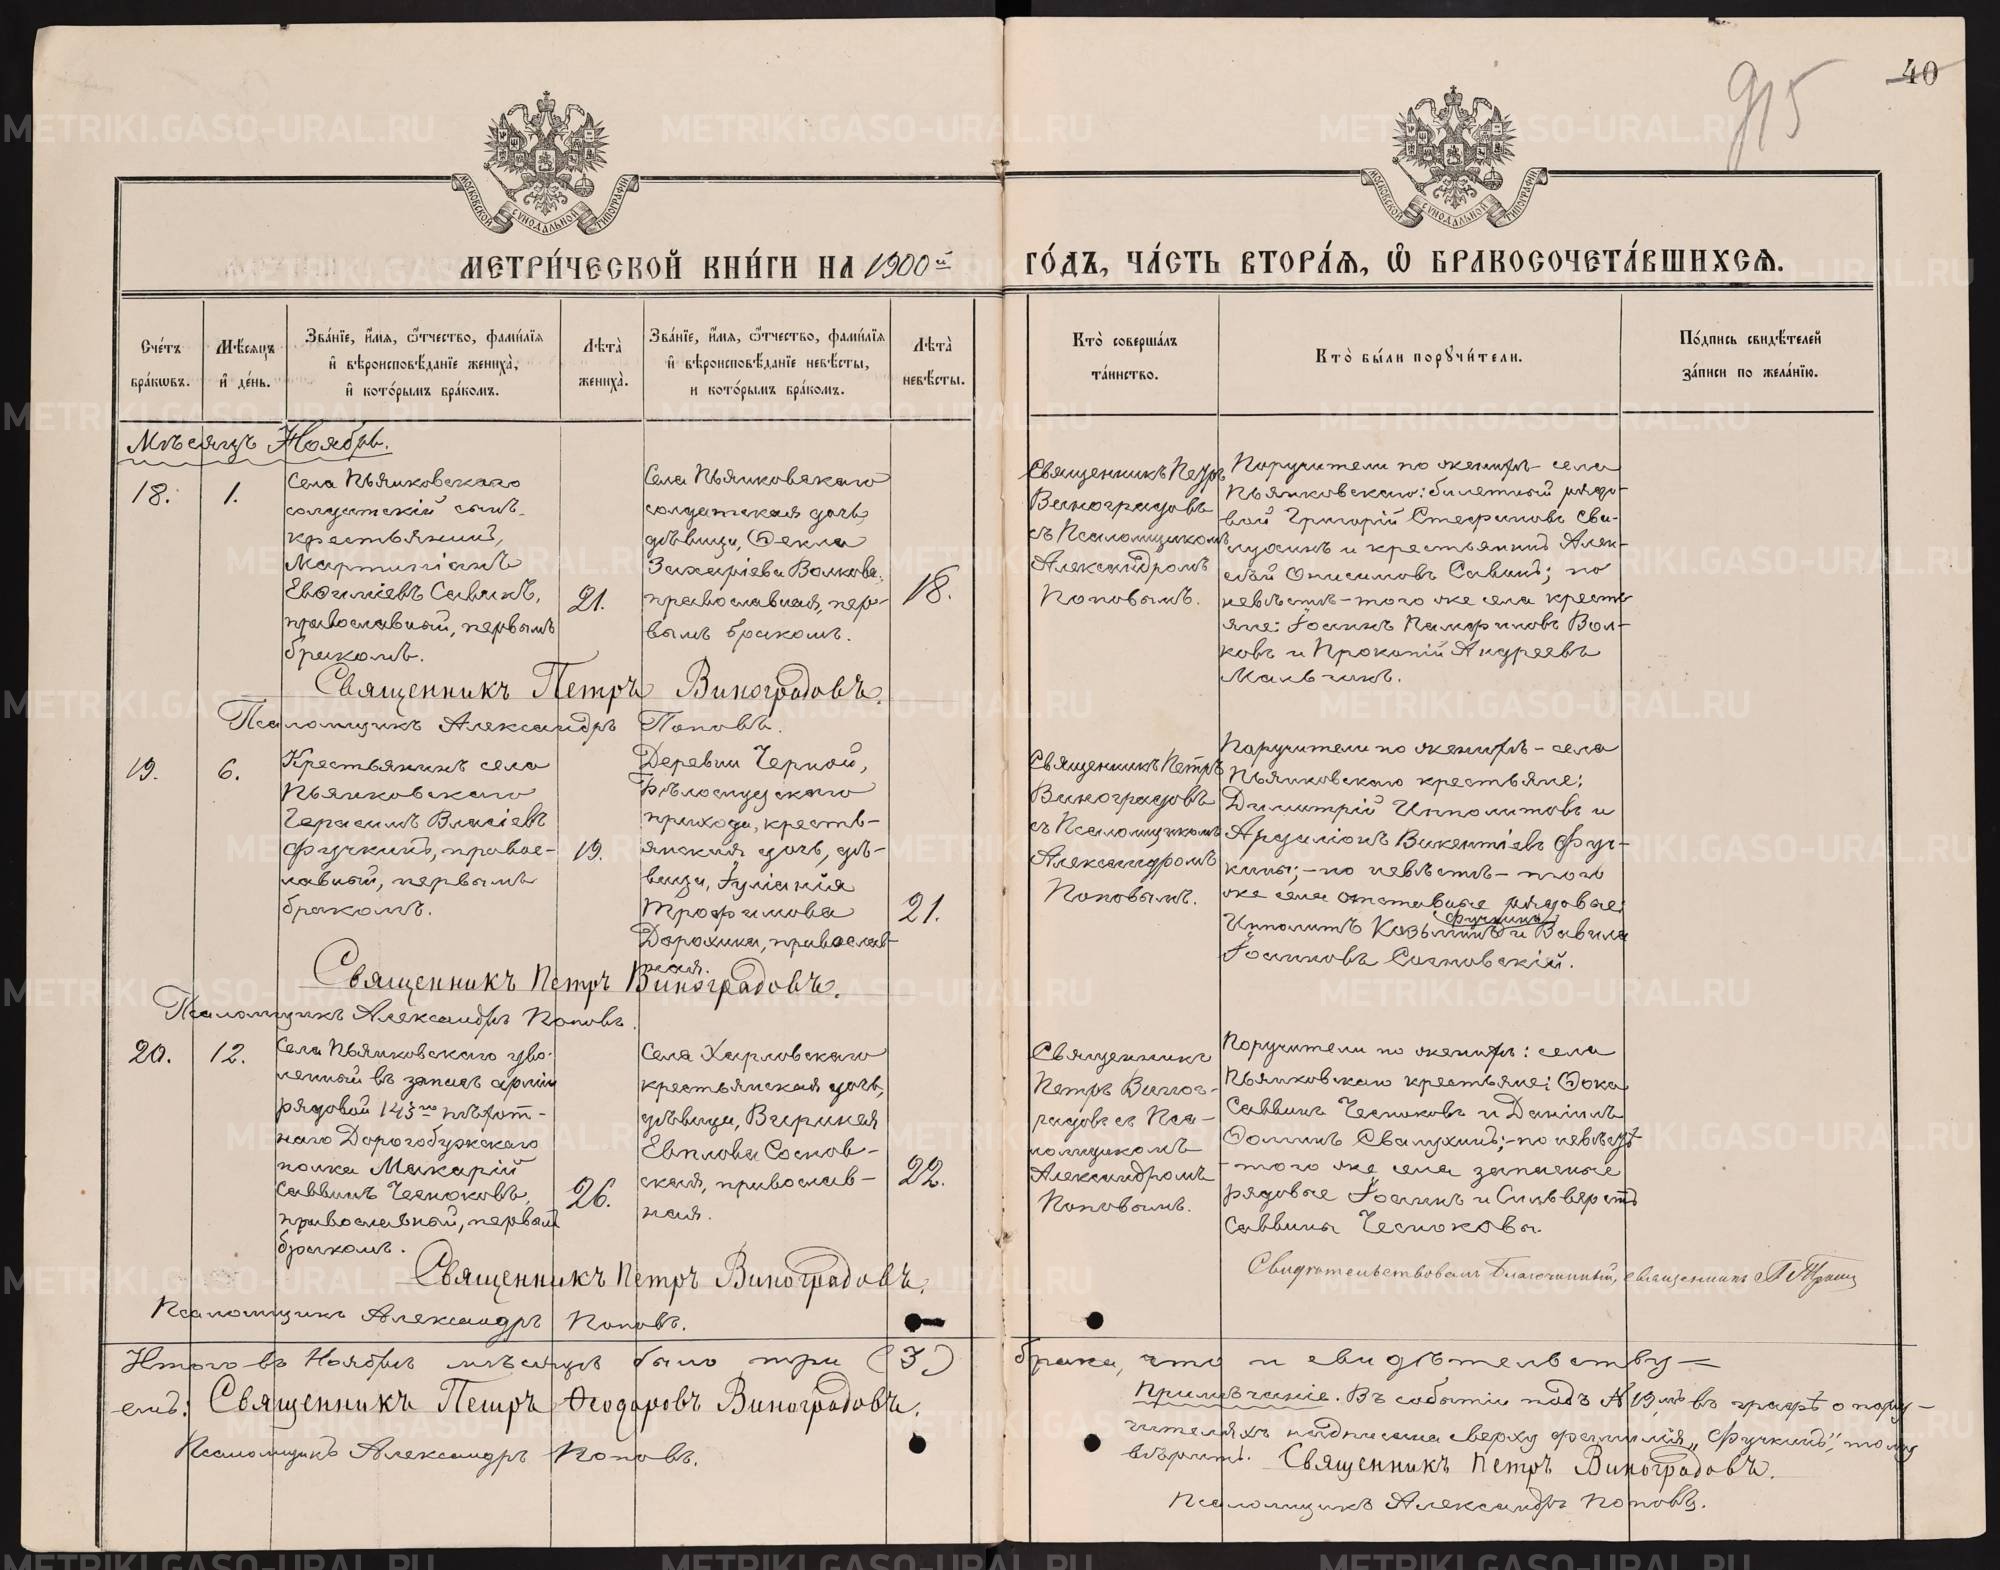 40
915
МОСКОВСКОЙ СѴНОДАЛЬНОЙ ТИПОГРАФІИ
МОСКОВСКОЙ СѴНОДАЛЬНОЙ ТИПОГРАФІИ
МЕТРИ́ЧЕСКОЙ КНИ́ГИ НА 1900й ГО́ДЪ, ЧА́СТЬ ВТОРА́Ѧ, Ѡ҆ БРАКОСОЧЕТА́ВШИХСѦ.
Сче́тъ бра́кѡвъ.
Мѣ́сѧцъ и҆ де́нь.
Зва́нїе, и҆́мѧ, ѻ҆́тчество, фами́лїѧ и҆ вѣроисповѣ́данїе жениха̀, и҆ кото́рымъ бра́комъ.
Лѣта̀ жениха̀.
Зва́нїе, и҆́мѧ, ѻ҆́тчество, фами́лїѧ и҆ вѣроисповѣ́данїе невѣ́сты, и҆ кото́рымъ бра́комъ.
Лѣта̀ невѣ́сты.
Кто̀ соверша́лъ та́инство.
Кто̀ бы́ли порꙋчи́тели.
По́дпись свидѣ́телей за́писи по жела́нїю.
Мѣсяцъ Ноябрь.
18.
1.
Села Пьянковскаго
солдатскій сынъ
крестьянинъ,
Мартиніанъ
Евѳиміевъ Савинъ,
православный, первымъ
бракомъ.
21.
Села Пьянковскаго
солдатская дочь,
дѣвица, Ѳекла
Захаріева Волкова,
православная, пер-
вымъ бракомъ.
18.
Священникъ Петръ
Виноградовъ
съ Псаломщикомъ
Александромъ
Поповымъ.
Поручители по женихѣ – села
Пьянковскаго: билетный рядо-
вой Григорій Стефановъ Сва-
лухинъ и крестьянинъ Алек-
сѣй Онисимовъ Савинъ; по
невѣстѣ – того же села кресть
яне: Іоаннъ Памфиловъ Вол-
ковъ и Прокопій Андреевъ
Мальчихъ.
Священникъ Петръ Виноградовъ.
Псаломщикъ Александръ Поповъ.
19.
6.
Крестьянинъ села
Пьянковскаго
Герасимъ Власіевъ
Фучкинъ, правос-
лавный, первымъ
бракомъ.
19.
Деревни Черной,
Бѣлослудскаго
прихода, кресть-
янская дочь, дѣ-
вица, Іуліанія
Трофимова
Дорохина, православ-
ная.
21.
Священникъ Петръ
Виноградовъ
съ Псаломщикомъ
Александромъ
Поповымъ.
Поручители по женихѣ – села
Пьянковскаго крестьяне:
Димитрій Ипполитовъ и
Ардаліонъ Викентіевъ Фуч-
кины; – по невѣстѣ – того
же села отставные рядовые:
Фучкинъ
Ипполитъ Козьминъ и Вавила
Іоанновъ Сосновскій.
Священникъ Петръ Виноградовъ.
Псаломщикъ Александръ Поповъ.
20.
12.
Села Пьянковскаго уво-
ленный въ запасъ арміи
рядовой 143го пѣхот-
наго Дорогобужскаго
полка Макарій
Саввинъ Чесноковъ,
православный, первымъ
бракомъ.
26.
Села Харловскаго
крестьянская дочь,
дѣвица, Виринея
Евплова Соснов-
ская, православ-
ная.
22.
Священникъ
Петръ Виног-
радовъ съ Пса-
ломщикомъ
Александромъ
Поповымъ.
Поручители по женихѣ: села
Пьянковскаго крестьяне: Ѳока
Саввинъ Чесноковъ и Даніилъ
Ѳоминъ Свалухинъ; – по невѣстѣ
– того же села запасные
рядовые Іоаннъ и Сильверстъ
Саввины Чесноковы.
Священникъ Петръ Виноградовъ.
Псаломщикъ Александръ Поповъ.
Свидѣтельствовалъ Благочинный, священникъ
Итого въ Ноябрѣ мѣсяцѣ было три (3) брака, что и свидѣтельству=
емъ: Священникъ Петръ Ѳеодоровъ Виноградовъ.
Псаломщикъ Александръ Поповъ.
Примѣчаніе. Въ событіи подъ №19мъ въ графѣ о пору-
чителяхъ надписана сверху фамилія „Фучкинъ", тому
вѣрить. Священникъ Петръ Виноградовъ.
Псаломщикъ Александръ Поповъ.
METRIKI.GASO-URAL.RU